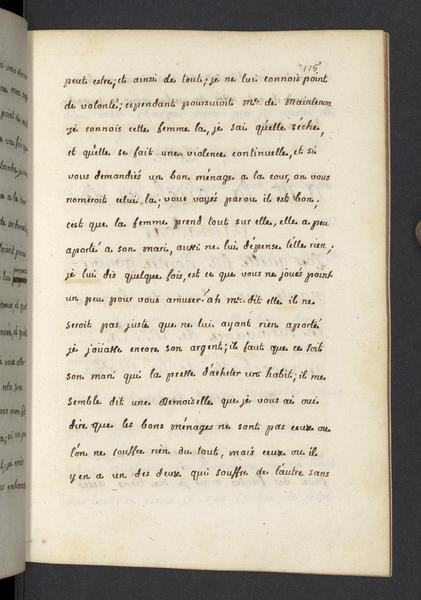 115
peut estre; et ainsi de tout; je ne lui connois point
de volonté; cependant poursuivit Me. de Maintenon
je connois cette femme la, je sai qu'elle séche,
et qu'elle se fait une violence continuelle, et si
vous demandiés un bon ménage a la cour, on vous
nomeroit celui la; vous voyés par ou il est bon;
c'est que la femme prend tout sur elle, elle a peu
aporté a son mari, aussi ne lui dépense t'elle rien;
je lui dis quelque fois, est ce que vous ne joués point
un peu pour vous amuser? ah Me. dit elle il ne
seroit pas juste que ne lui ayant rien aporté
je joüasse encore son argent; il faut que ce soit
son mari qui la presse d'acheter un habit; il me
semble dit une Demoiselle que je vous ai oui
dire que les bons ménages ne sont pas ceux ou
l'on ne souffre rien du tout, mais ceux ou il
y en a un des deux qui souffre de l'autre sans